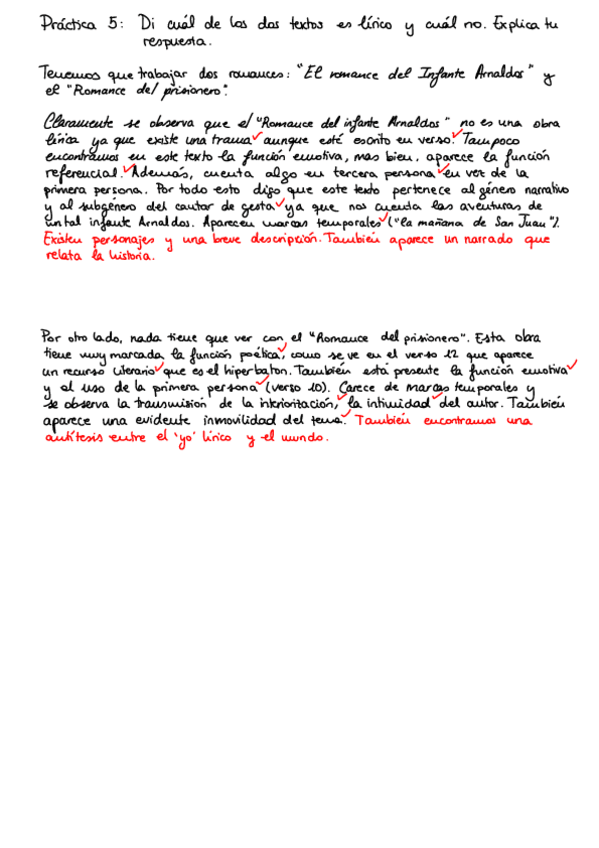 Práctica 5: Di cuál de los dos textos es lírico y cuál no. Explica tu
respuesta.
Tenemos que trabajar dos romances: "El romance del Infante Arnaldos" y
el "Romance del prisionero".
Claramente se observa que el "Romance del infante Arnaldos" no es una obra
lírica ya que existe una trama aunque esté escrito en verso. Tampoco
encontramos en este texto la función emotiva, mas bien, aparece la función
referencial. Además, cuenta algo en tercera persona en vez de la
primera persona. Por todo esto digo que este texto pertenece al género narrativo
y al subgénero del cantar de gesta ya que nos cuenta las aventuras de
un tal infante Arnaldos. Aparecen marcas temporales ("la mañana de San Juan").
Existen personajes y una breve descripción. También aparece un narrado que
relata la historia.
Por otro lado, nada tiene que ver con el "Romance del prisionero". Esta obra
tiene muy marcada la función poética, como se ve en el verso 12 que aparece
un recurso literario que es el hiperbaton. También está presente la función emotiva
y el uso de la primera persona (verso 10). Carece de marcas temporales y
se observa la transmisión de la interiorización, la intimidad del autor. También
aparece una evidente inmovilidad del tema. También encontramos una
antítesis entre el 'yo' lírico y el mundo.